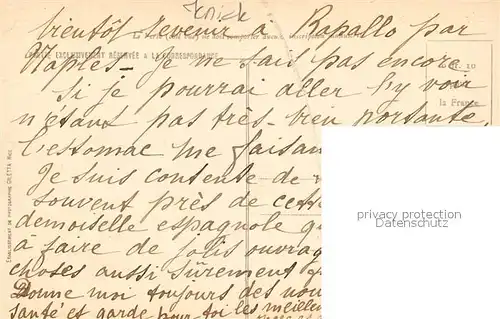 bientôt revenir à Rapallo par
PARTIE EXCLUSIVEMENT RÉSERVÉE A LA CORRESPONDANCE
Naples - Je ne sais pas encore
si je pourrai aller l'y voir
0 fr. 10
la France
n'étant pas très-bien portante,
l'estomac me faisan
Je suis contente de
souvent près de cette
demoiselle espagnole
à faire de jolis ouvrag
choses aussi sûrement
Donne moi toujours des nou
santé et garde pour toi les meille
ETABLISSEMENT DE PHOTOGRAPHIE GILETTA NICE
privacy protection
Datenschutz